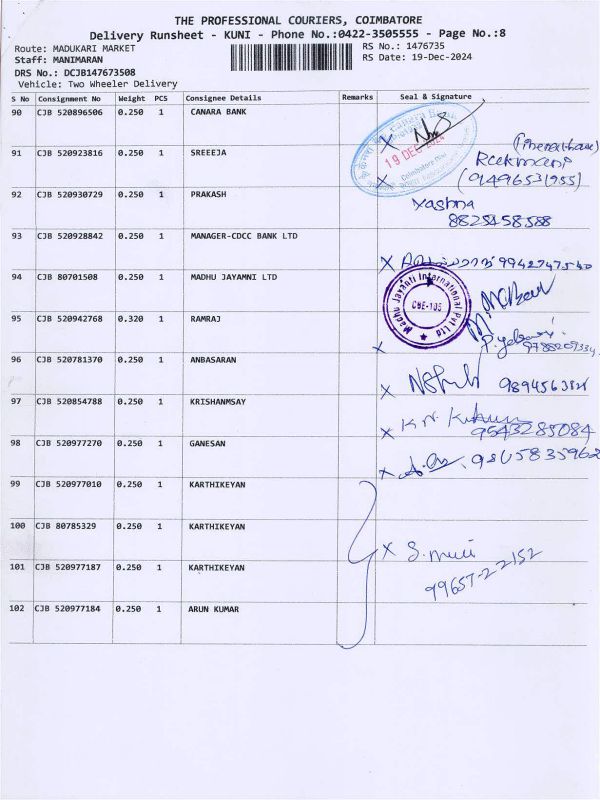 THE PROFESSIONAL COURIERS, COIMBATORE
Delivery Runsheet - KUNI - Phone No.:0422-3505555 - Page No.:8
Route: MADUKARI MARKET
RS No.: 1476735
Staff: MANIMARAN
RS Date: 19-Dec-2024
DRS No.: DCJB147673508
Vehicle: Two Wheeler Delivery
S No Consignment No Weight PCS Consignee Details Remarks Seal & Signature
90 CJB 520896506 0.250 1 CANARA BANK
19 DEC 2024
91 CJB 520923816 0.250 1 SREEEJA
(91496531955)
92 CJB 520930729 0.250 1 PRAKASH Yashna
8825458588
93 CJB 520928842 0.250 1 MANAGER-CDCC BANK LTD
X 9942747540
94 CJB 80701508 0.250 1 MADHU JAYAMNI LTD
Madhu Jayanti International Pvt Ltd
CBE-105
95 CJB 520942768 0.320 1 RAMRAJ
X
96 CJB 520781370 0.250 1 ANBASARAN
X
97 CJB 520854788 0.250 1 KRISHANMSAY
X K.N.
9543285084
98 CJB 520977270 0.250 1 GANESAN
X 9865835962
99 CJB 520977010 0.250 1 KARTHIKEYAN
100 CJB 80785329 0.250 1 KARTHIKEYAN
X S.
99657-22152
101 CJB 520977187 0.250 1 KARTHIKEYAN
102 CJB 520977184 0.250 1 ARUN KUMAR